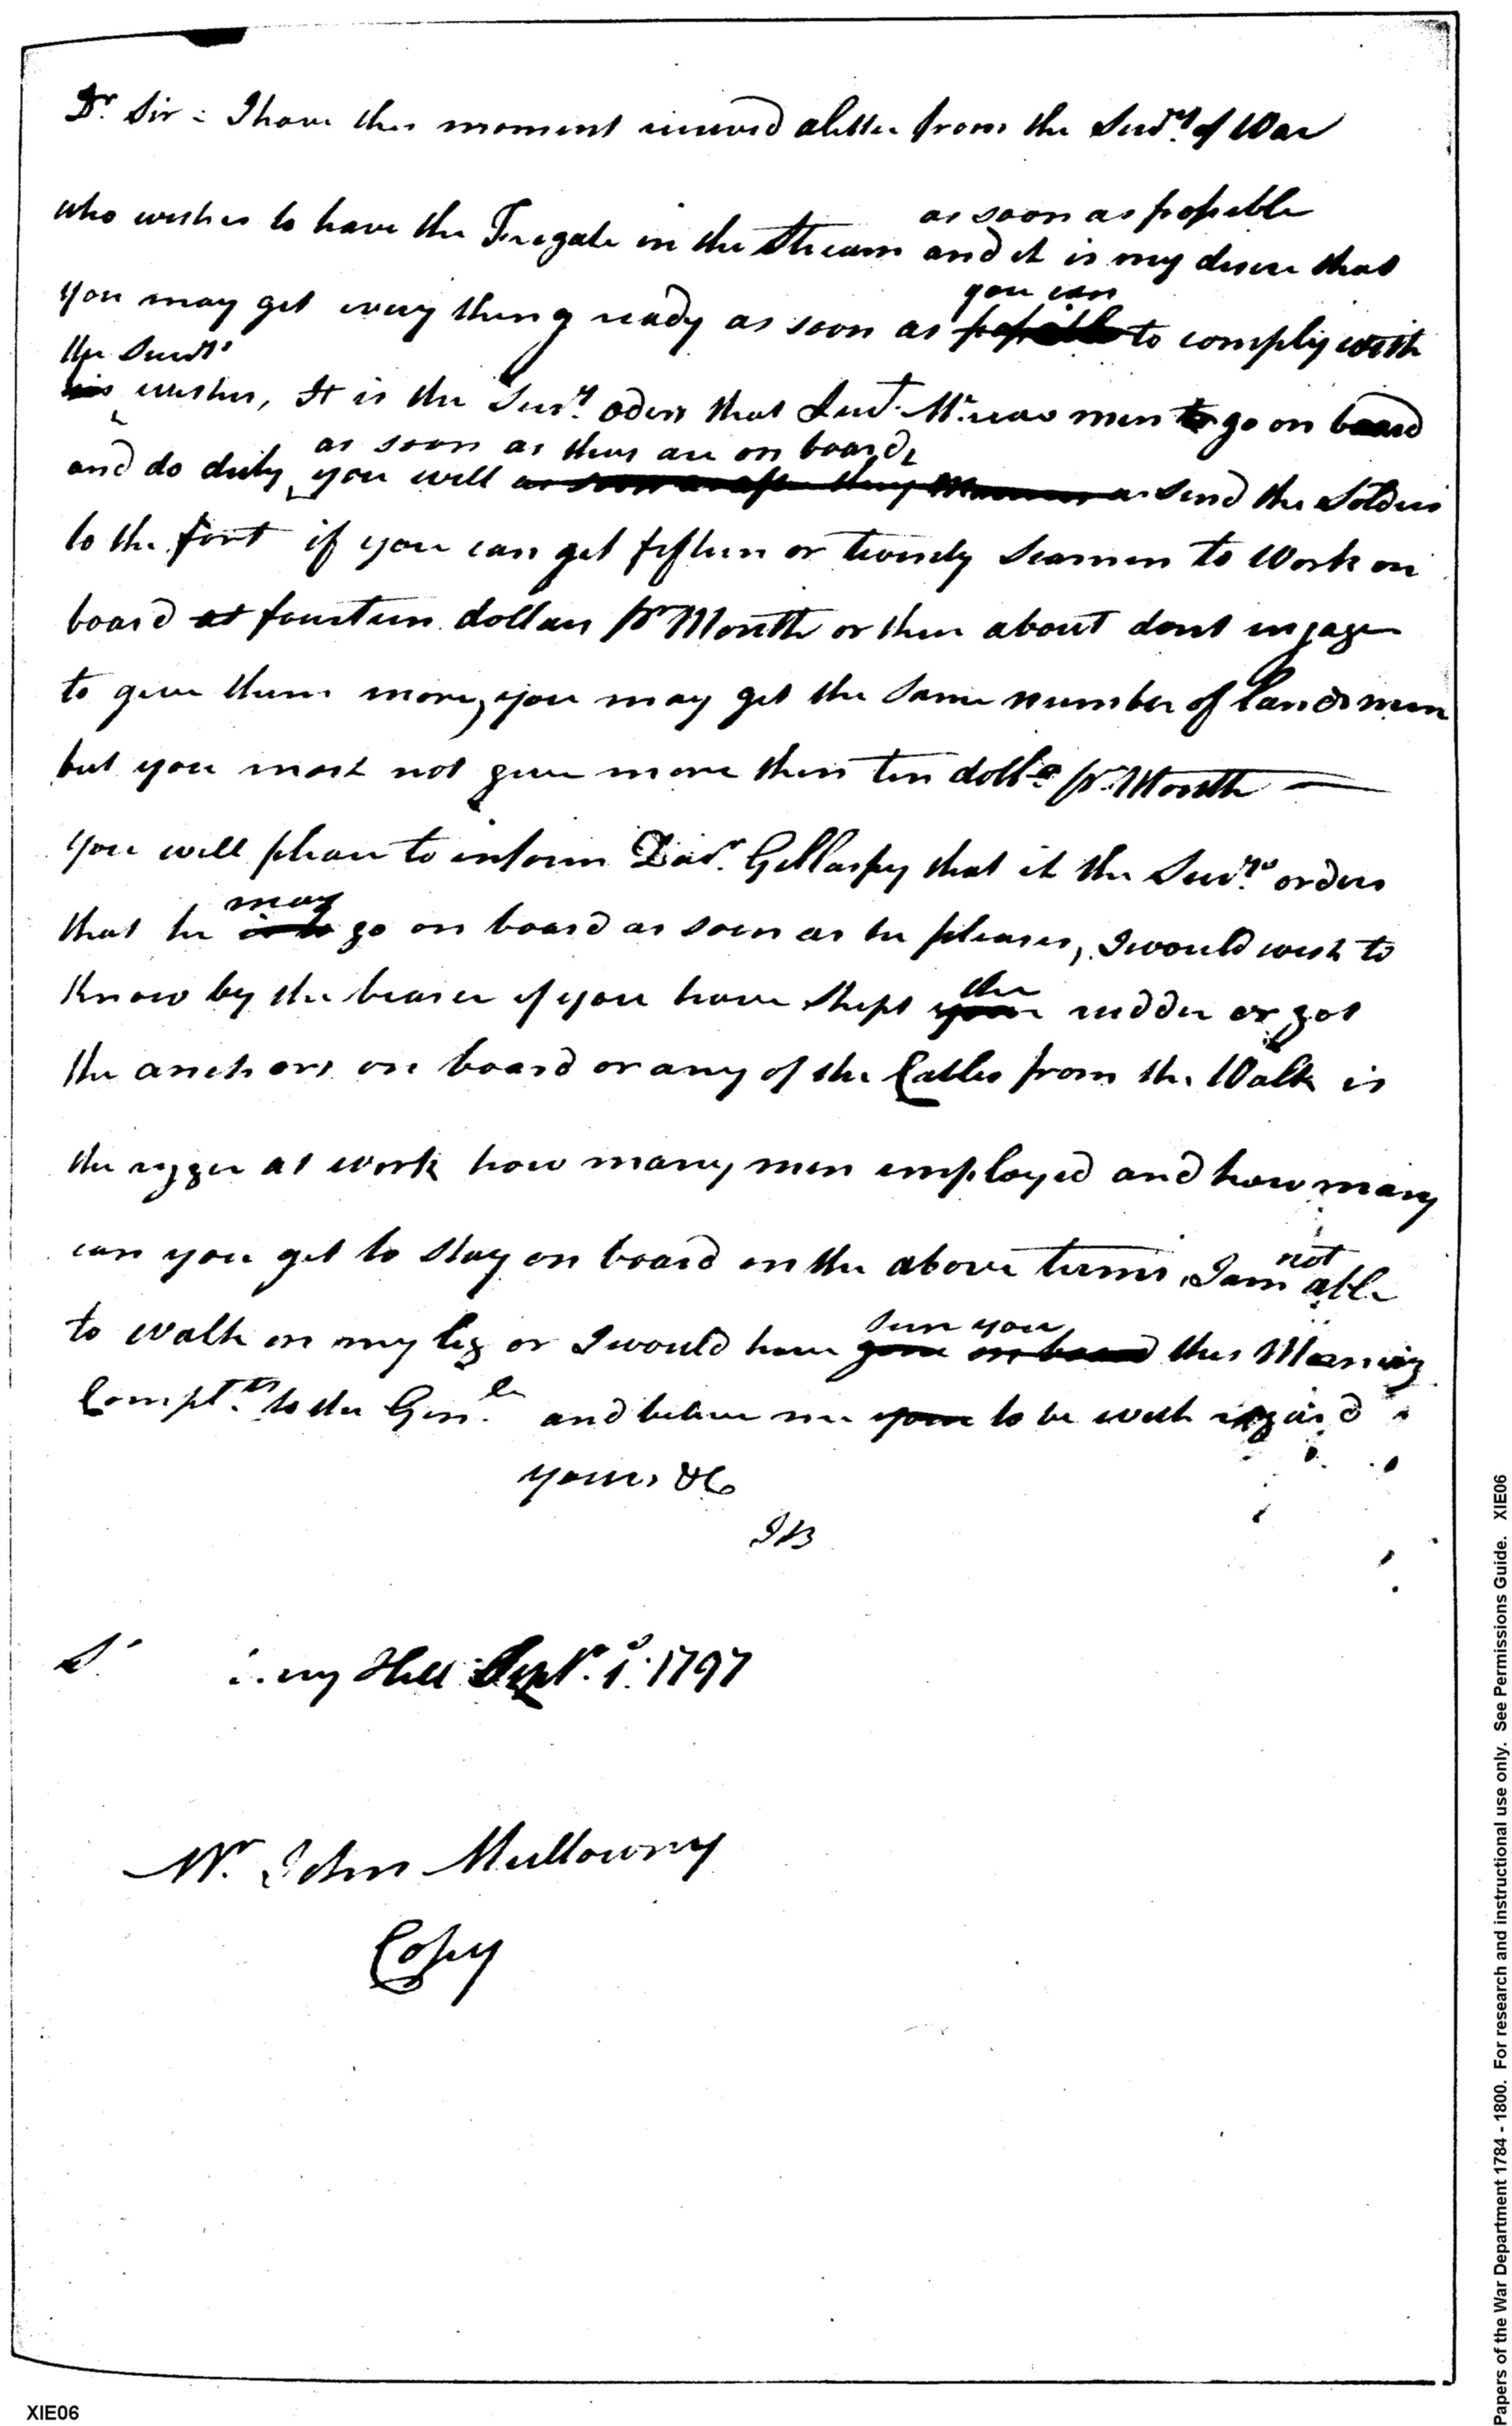 Dr. Sir - I have this moment receved aletter from the Secrty. of War
as soon as possible
who wishes to have the Fregate in the Stream and it is my desire that
you can
you may get every thing ready as soon as possible to comply with
the Secrtys
his wishes, It is the Secrty. oders that Lieut. McReas men to go on board
as soon as thay are on board,
and do duty, you will as soon as after they send the Soldiers
to the fort if you can get fifteen or twenty Seamen to Work on
board at fourteen dollars pr Month or there about dont ingage
to give them more, you may get the Same number of landsmen
but you most not give more then ten dolls. pr. Month
you will please to inform Docr. Gellaspy that it the Secrtys. orders
may
that he is to go on board as soon as he pleases, I would wish to
the
know by the bearer if you have Shipt your rudder or got
the anchors on board or any of the Cables from the Walk is
the rigger at work how many men employed and how many
not
can you get to stay on board on the above terms, I am able
seen you
to walk on my leg or I would have gone on board this Morning
Complts. to the Genle and beleve me your to be with regard
yours &C
JB
Hill Sept. 1. 1797
Mr. John Mullowny
Copy
XIE06
Papers of the War Department 1784 - 1800. For research and instructional use only. See Permissions Guide. XIE06